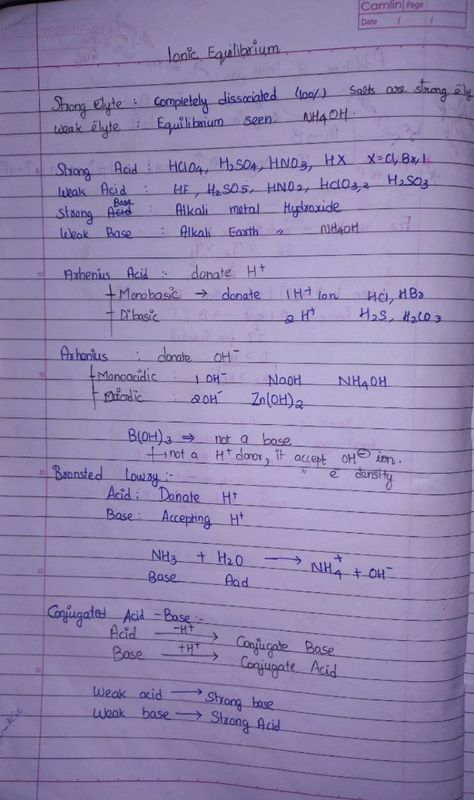 Camlin Page
Date / /
Ionic Equilibrium
Strong élyte : Completely dissociated (100%) Salts are strong ély
Weak élyte : Equilibrium seen NH4OH.
Strong Acid : HClO4, H2SO4, HNO3, HX X=Cl, Br, I
Weak Acid : HF, H2SO5, HNO2, HClO3,2 H2SO3
Strong Acid Base : Alkali metal Hydroxide
Weak Base : Alkali Earth " NH4OH
Arhenius Acid :- donate H+
Monobasic → donate 1H+ ion HCl, HBr
Dibasic 2 H+ H2S, H2CO3
Arhenius : donate OH-
Monoacidic : 1 OH- NaOH NH4OH
: 2OH- Zn(OH)2
B(OH)3 ⇒ not a base
→ not a H+ donor, it accept OH⊖ ion.
" e- density
Bronsted Lowry :-
Acid : Donate H+
Base : Accepting H+
NH3 + H2O → NH4+ + OH-
Base Acid
Conjugated Acid - Base :-
Acid -H+→ Conjugate Base
Base +H+→ Conjugate Acid
Weak acid → Strong base
Weak base → Strong Acid